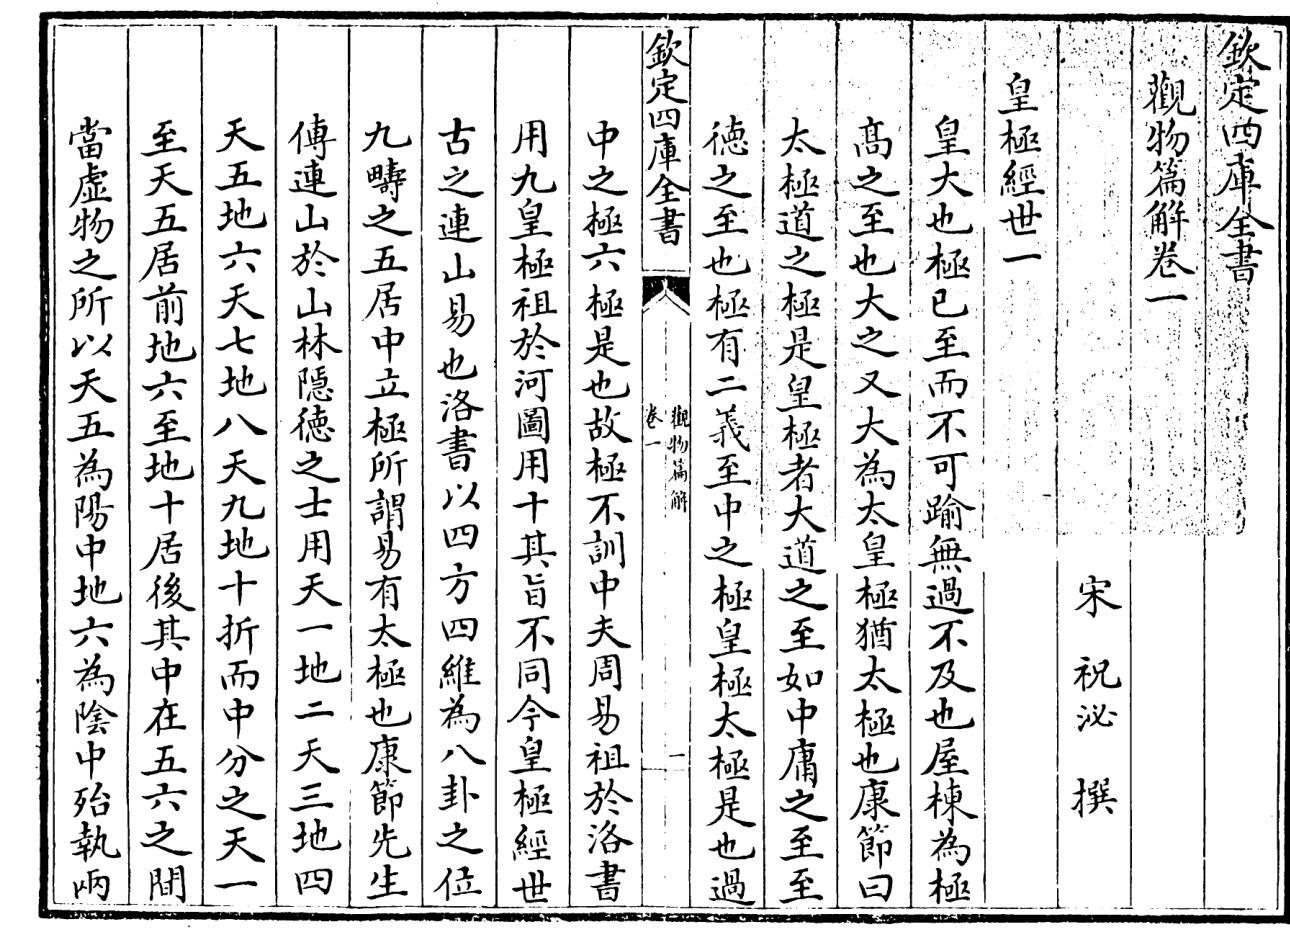 欽定四庫全書
觀物篇解卷一
宋 祝泌 撰
皇極經世一
皇大也極已至而不可踰無過不及也屋棟為極
髙之至也大之又大為太皇極猶太極也康節曰
太極道之極是皇極者大道之至如中庸之至至
徳之至也極有二義至中之極皇極太極是也過
欽定四庫全書
觀物篇解
卷一
一
中之極六極是也故極不訓中夫周易祖於洛書
用九皇極祖於河圖用十其旨不同今皇極經世
古之連山易也洛書以四方四維為八卦之位
九疇之五居中立極所謂易有太極也康節先生
傳連山於山林隠徳之士用天一地二天三地四
天五地六天七地八天九地十折而中分之天一
至天五居前地六至地十居後其中在五六之間
當虛物之所以天五為陽中地六為陰中殆執兩